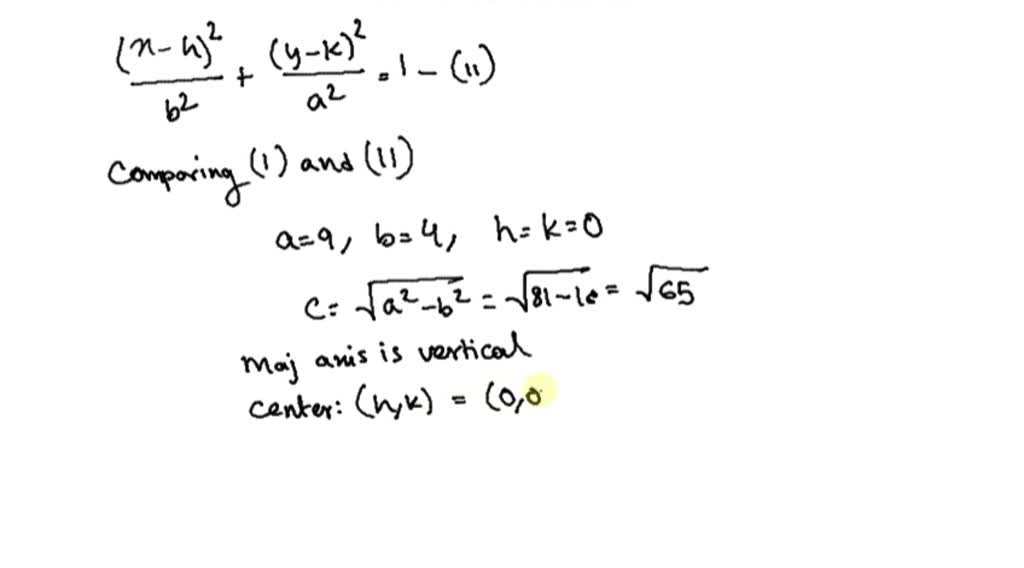 (x-h)²/b² + (y-k)²/a² = 1 - (11)
Comparing (1) and (11)
a=9, b=4, h=k=0
c= √a²-b² = √81-16 = √65
Maj axis is vertical
center: (h,k) = (0,0